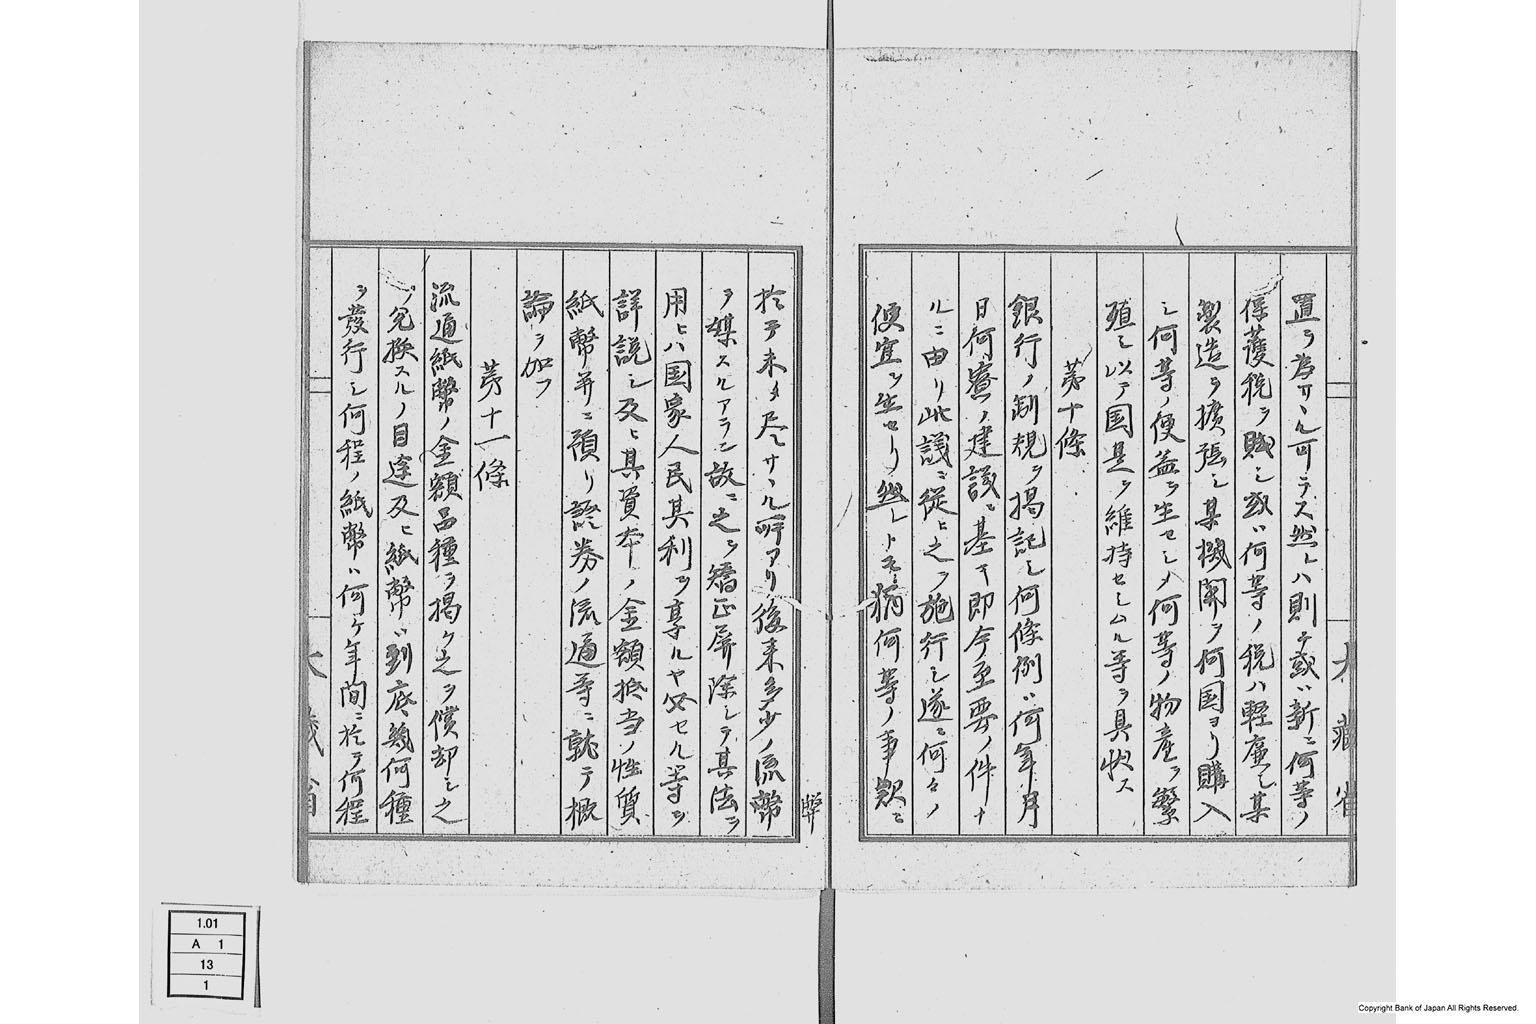 置ヲ為サヽル可ラス然レハ則チ或ハ新ニ何等ノ
保護税ヲ賦シ或ハ何等ノ税ハ軽廉シ某
製造ヲ擴張シ某機関ヲ何国ヨリ購入
シ何等ノ便益ヲ生セシメ何等ノ物産ヲ繁
殖シ以テ国是ヲ維持セシムル等ヲ具状ス
第十條
銀行ノ制規ヲ掲記シ何條例ハ何年月
日何寮ノ建議ニ基キ即今至要ノ件ナ
ルニ由リ此議ニ從ヒ之ヲ施行シ遂ニ何々ノ
便宜ヲ生セリ然レトモ猶何等ノ事款ニ
於テ未タ尽サヽル所アリ後来多少ノ流幣
ヲ媒スルアラン故ニ之ヲ矯正屏除シテ其法ヲ
用ヒハ国家人民其利ヲ享ルヤ必セル等ヲ
詳説シ及ヒ其資本ノ金額抵当ノ性質
紙幣并ニ預リ證券ノ流通等ニ就テ概
論ヲ加フ
第十一條
流通紙幣ノ金額品種ヲ掲ケ之ヲ償却シ之
ヲ兌換スルノ目途及ヒ紙幣ハ到底幾何種
ヲ發行シ何程ノ紙幣ハ何ケ年間ニ於テ何程
大藏省
弊
大藏省
1.01
A 1
13
1
Copyright Bank of Japan All Rights Reserved.